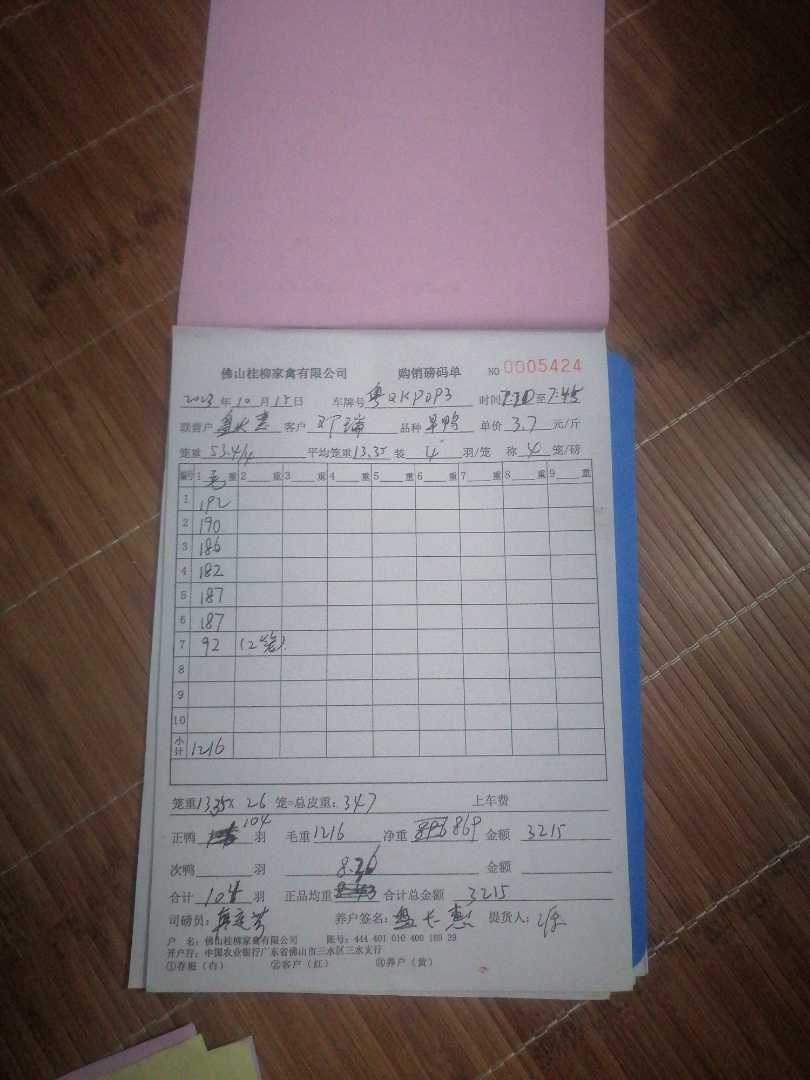 佛山桂柳家禽有限公司 购销磅码单 NO 0005424
2023年10月15日 车牌号 粤QKP0P3 时间 至7:45
联营户 客户 邓瑞 品种 单价 3.7 元/斤
笼重 53.4/4 平均笼重 13.35 装 4 羽/笼 称 4 笼/磅
编号 1 毛 重 2 重 3 重 4 重 5 重 6 重 7 重 8 重 9 重
1 192
2 190
3 186
4 182
5 187
6 187
7 92 (2笼)
8
9
10
小计 1216
笼重 13.35× 26 笼=总皮重: 347 上车费
正鸭 104 羽 毛重 1216 净重 869 金额 3215
次鸭 羽 8.36 金额
合计 104 羽 正品均重 合计总金额 3215
司磅员: 养户签名: 提货人:
户 名: 佛山桂柳家禽有限公司 账号: 444 401 010 400 169 29
开户行: 中国农业银行广东省佛山市三水区三水支行
①存根(白) ②客户(红) ③养户(黄)